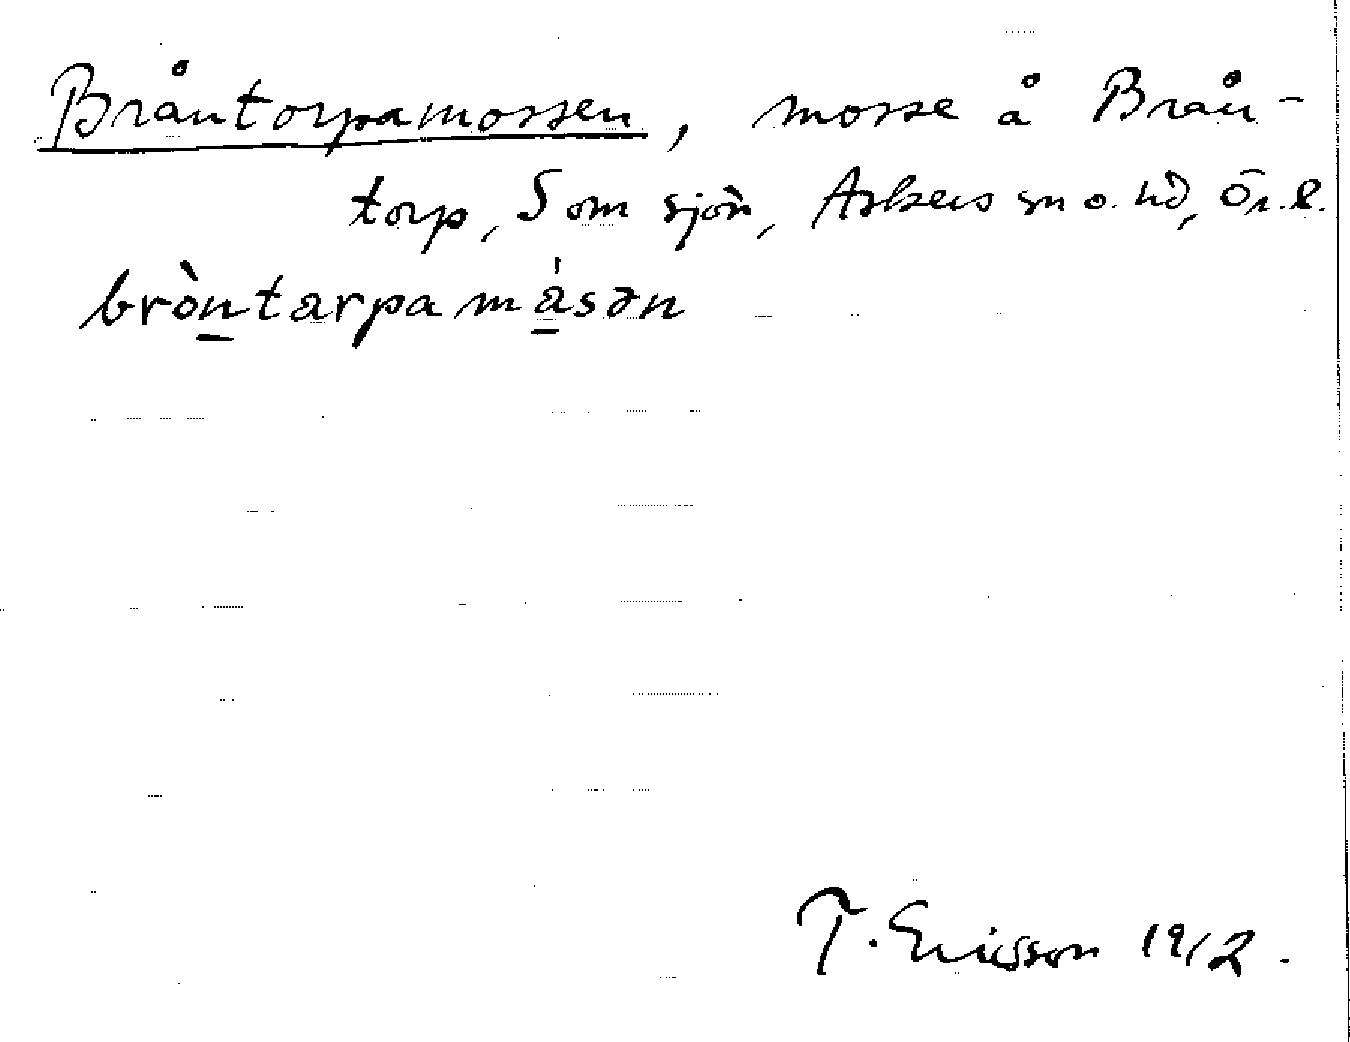 Bråntorpamossen, mosse å Brån-
torp, Som sjön, Askers sn o. hd, Ör. l.
bròntarpamásən
T. Ericsson 1912.